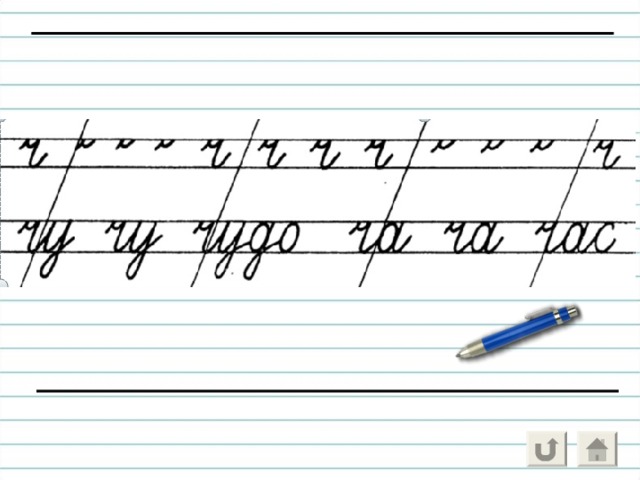 ч ч ч ч ч ч
чу чу чудо ча ча час